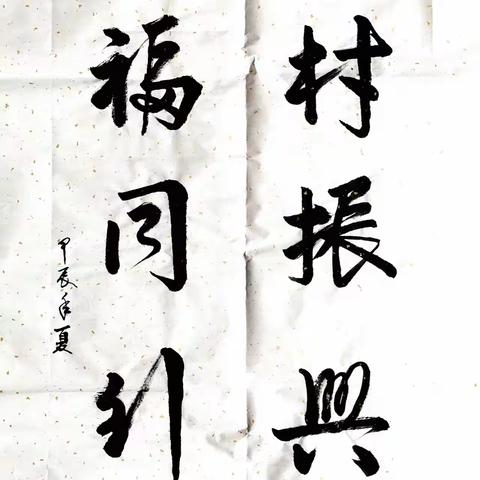 村振興
福同行
甲辰年夏